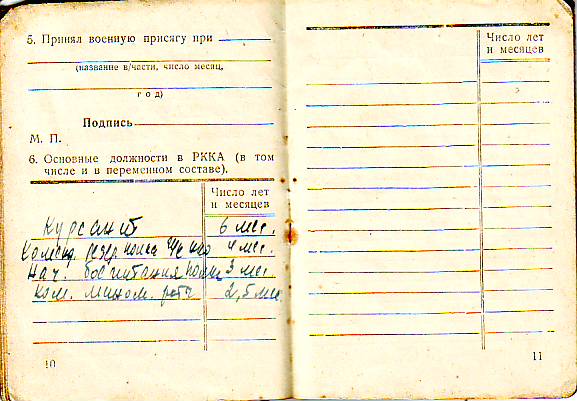 5. Принял военную присягу при
(название в/части, число месяц,
год)
Подпись
М. П.
6. Основные должности в РККА (в том
числе и в переменном составе).
Число лет
и месяцев
Курсант 6 мес.
Команд. резер. полка 4 мес.
Нач. боепитания полка 3 мес
Ком. мином. роты 2,5 мес
10
Число лет
и месяцев
11